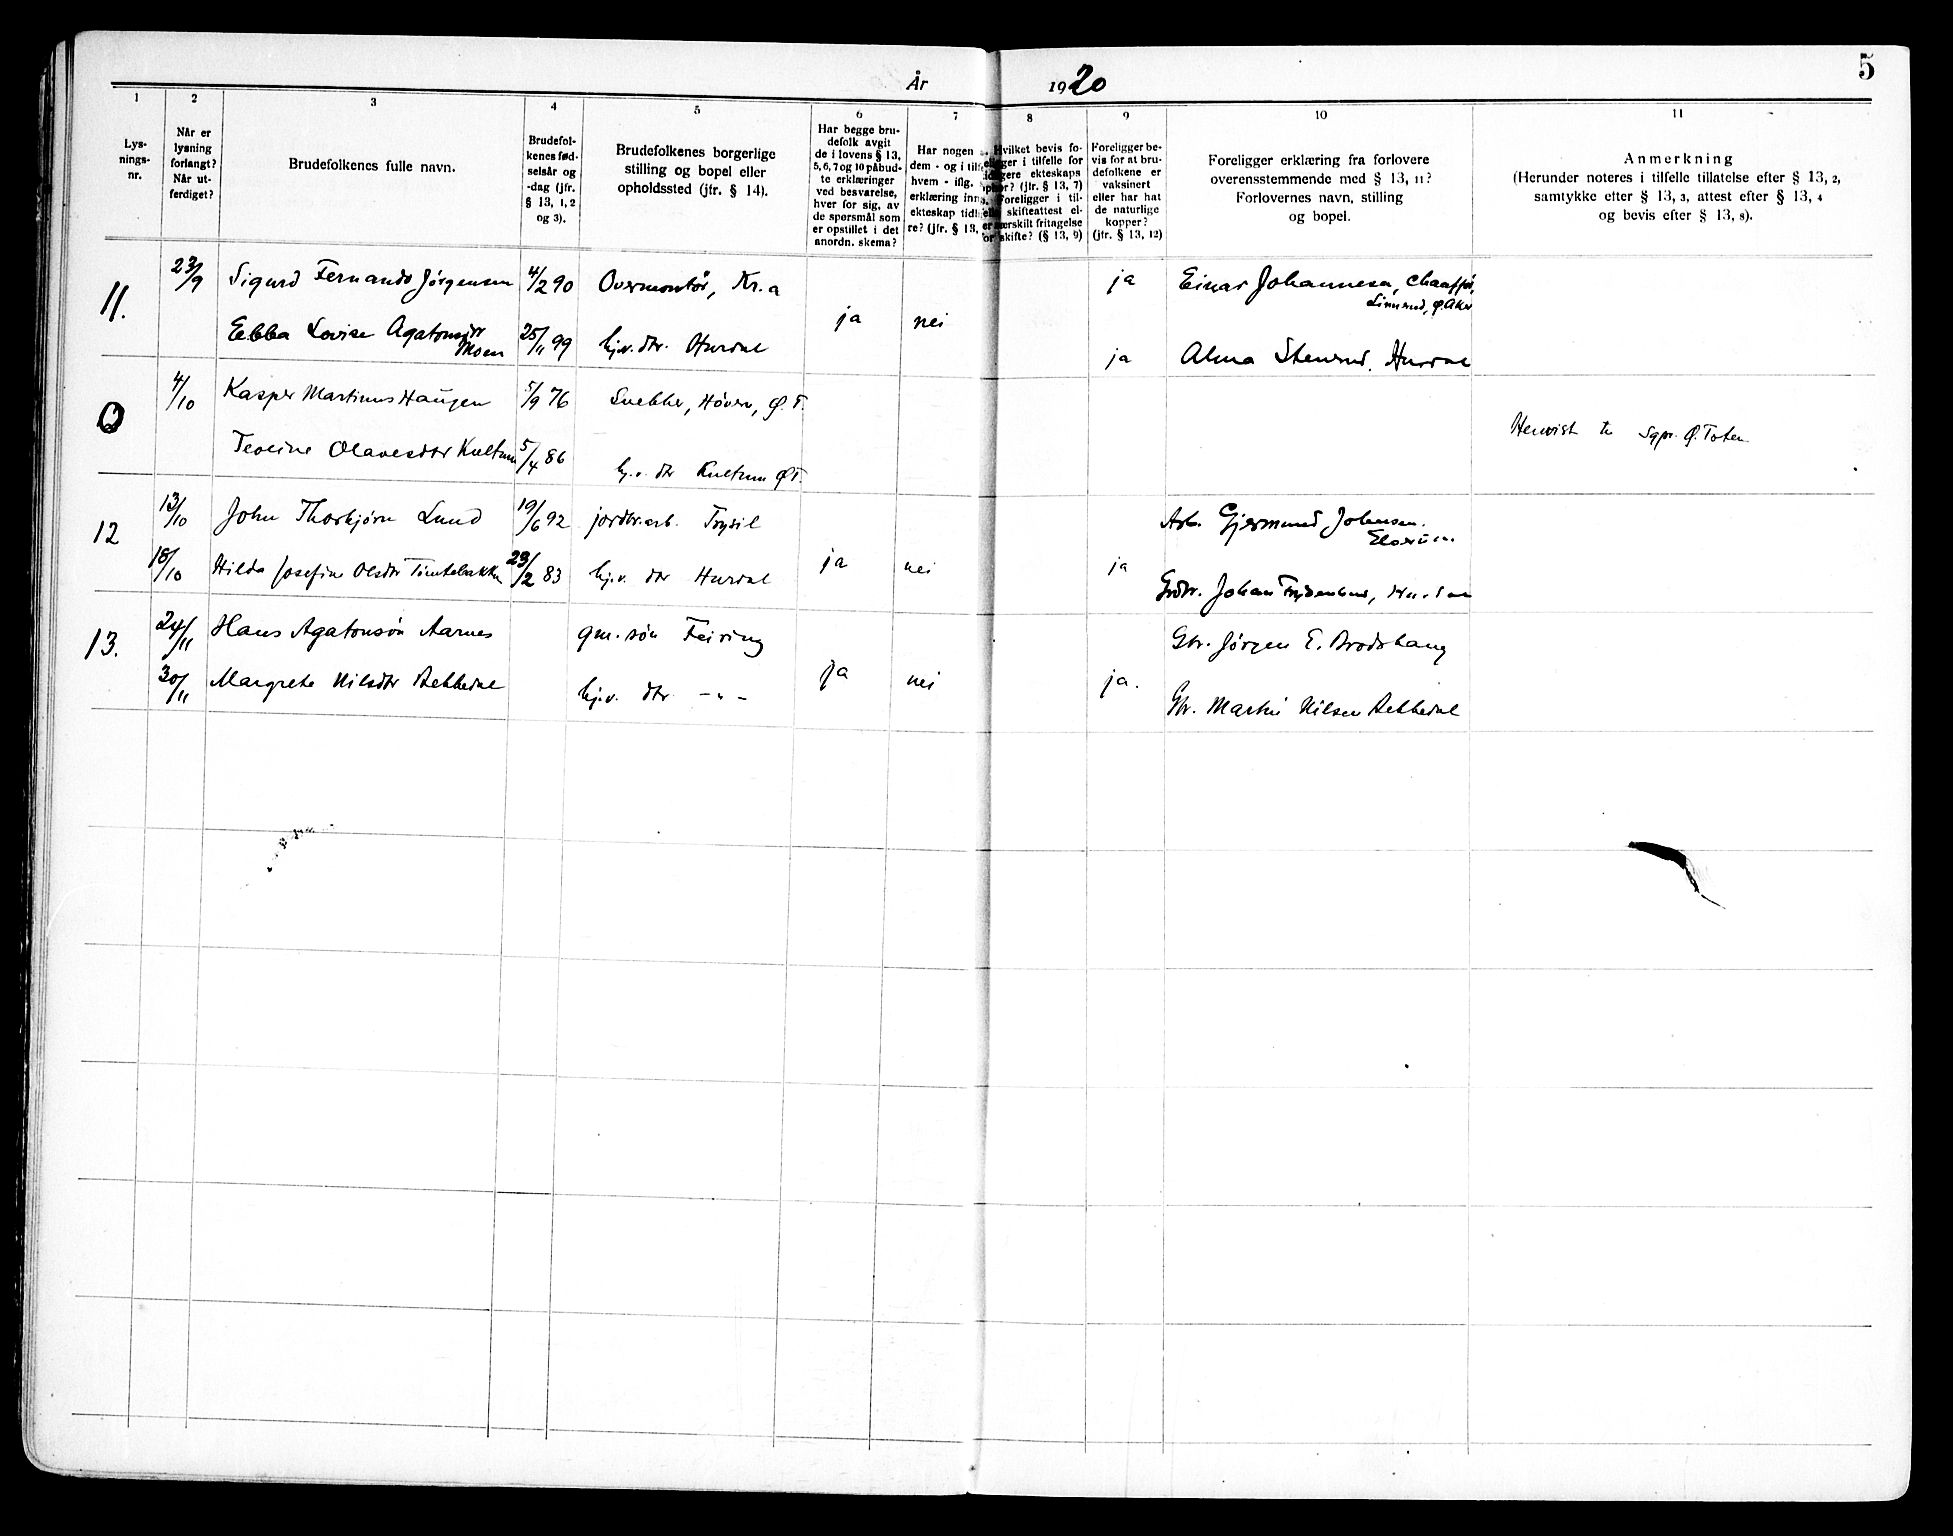 5
År 1920
1 2 3 4 5 6 7 8 9 10 11
Lys-
nings-
nr.
Når er
lysning
forlangt?
Når ut-
ferdiget?
Brudefolkenes fulle navn.
Brudefol-
kenes fød-
selsår og
-dag (jfr.
§ 13, 1, 2
og 3).
Brudefolkenes borgerlige
stilling og bopel eller
opholdssted (jfr. § 14).
Har begge bru-
defolk avgit
de i lovens § 13,
5, 6, 7 og 10 påbud-
te erklæringer
ved besvarelse,
hver for sig, av
de spørsmål som
er opstillet i det
anordn. skema?
Har nogen
dem - og i
hvem - iflg.
erklæring
ekteskap
re? (jfr. § 13,
Hvilket bevis fo-
ger i tilfelle for
gere ekteskaps
(jfr. § 13, 7)
Foreligger i til-
skifteattest el-
særskilt fritagelse
skifte? (§ 13, 9)
Foreligger be-
vis for at bru-
defolkene er
vaksinert
eller har hat
de naturlige
kopper?
(jfr. § 13, 12)
Foreligger erklæring fra forlovere
overensstemmende med § 13, 11?
Forlovernes navn, stilling
og bopel.
Anmerkning
(Herunder noteres i tilfelle tillatelse efter § 13, 2,
samtykke efter § 13, 3, attest efter § 13, 4
og bevis efter § 13, 8).
11. 23/9 Sigurd Fernando Jørgensen 4/2 90 Overmontør, Kr.a ja Einar Johannesen, Chauffør,
Ø. Aker
Ebba Lovise Agatonsdtr 25/11 99 hj.v. dtr. Hurdal ja nei ja Alma Stensrud, Hurdal
Moen
Q 4/10 Kasper Martinus Haugen 5/9 76 Snekker, Høvern, Ø.T.
Henvist til Sgpr. Ø. Toten
Teoline Olavesdtr Kultum 5/4 86 hj.v. dtr Kultum Ø.T.
12 13/10 John Thorbjørn Lund 19/6 92 jordbr.arb. Trysil Arb. Gjermund Johansen.
Elverum.
18/10 Hilda Josefine Olsdtr 23/2 83 hj.v. dtr Hurdal ja nei ja Grdbr. Johan Frydenlund, Hurdal
13. 24/11 Hans Agatonsøn Aarnes gm. søn Feiring Gbr. Jørgen E. Brodshaug
30/11 Margrete Nilsdtr Dekkedal hj.v. dtr. -"- ja nei ja. Gbr. Martin Nilsen Dekkedal